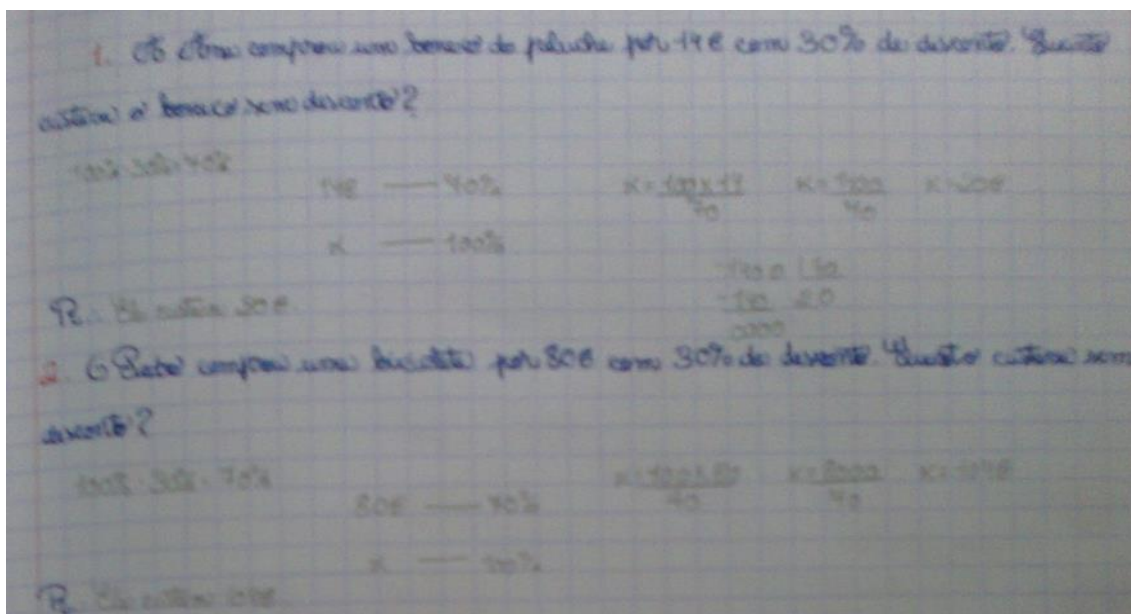 1. A Ana comprou um boneco de peluche por 14€ com 30% de desconto. Quanto
custava o boneco sem desconto?
100% - 30% = 70%
14€ — 70% x = 100 x 14 / 70 x = 1400 / 70 x = 20€
x — 100%
1400 70
20
0000
R.: Ele custava 20€.
2. O Pedro comprou uma bicicleta por 80€ com 30% de desconto. Quanto custava sem
desconto?
100% - 30% = 70%
80€ — 70% x = 100 x 80 / 70 x = 8000 / 70
x — 100%
R.: custava